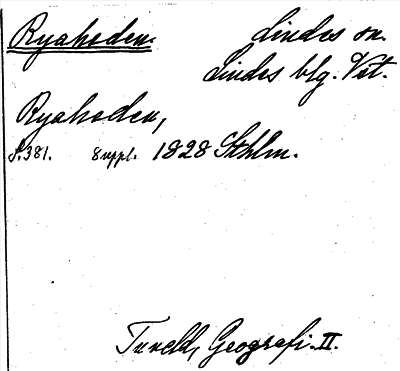 Ryahoden.
Lindes sn.
Lindes blg. Vstm.
Ryahoden,
S. 381. suppl. 1828 Sthlm.
Tuneld, Geografi. II.